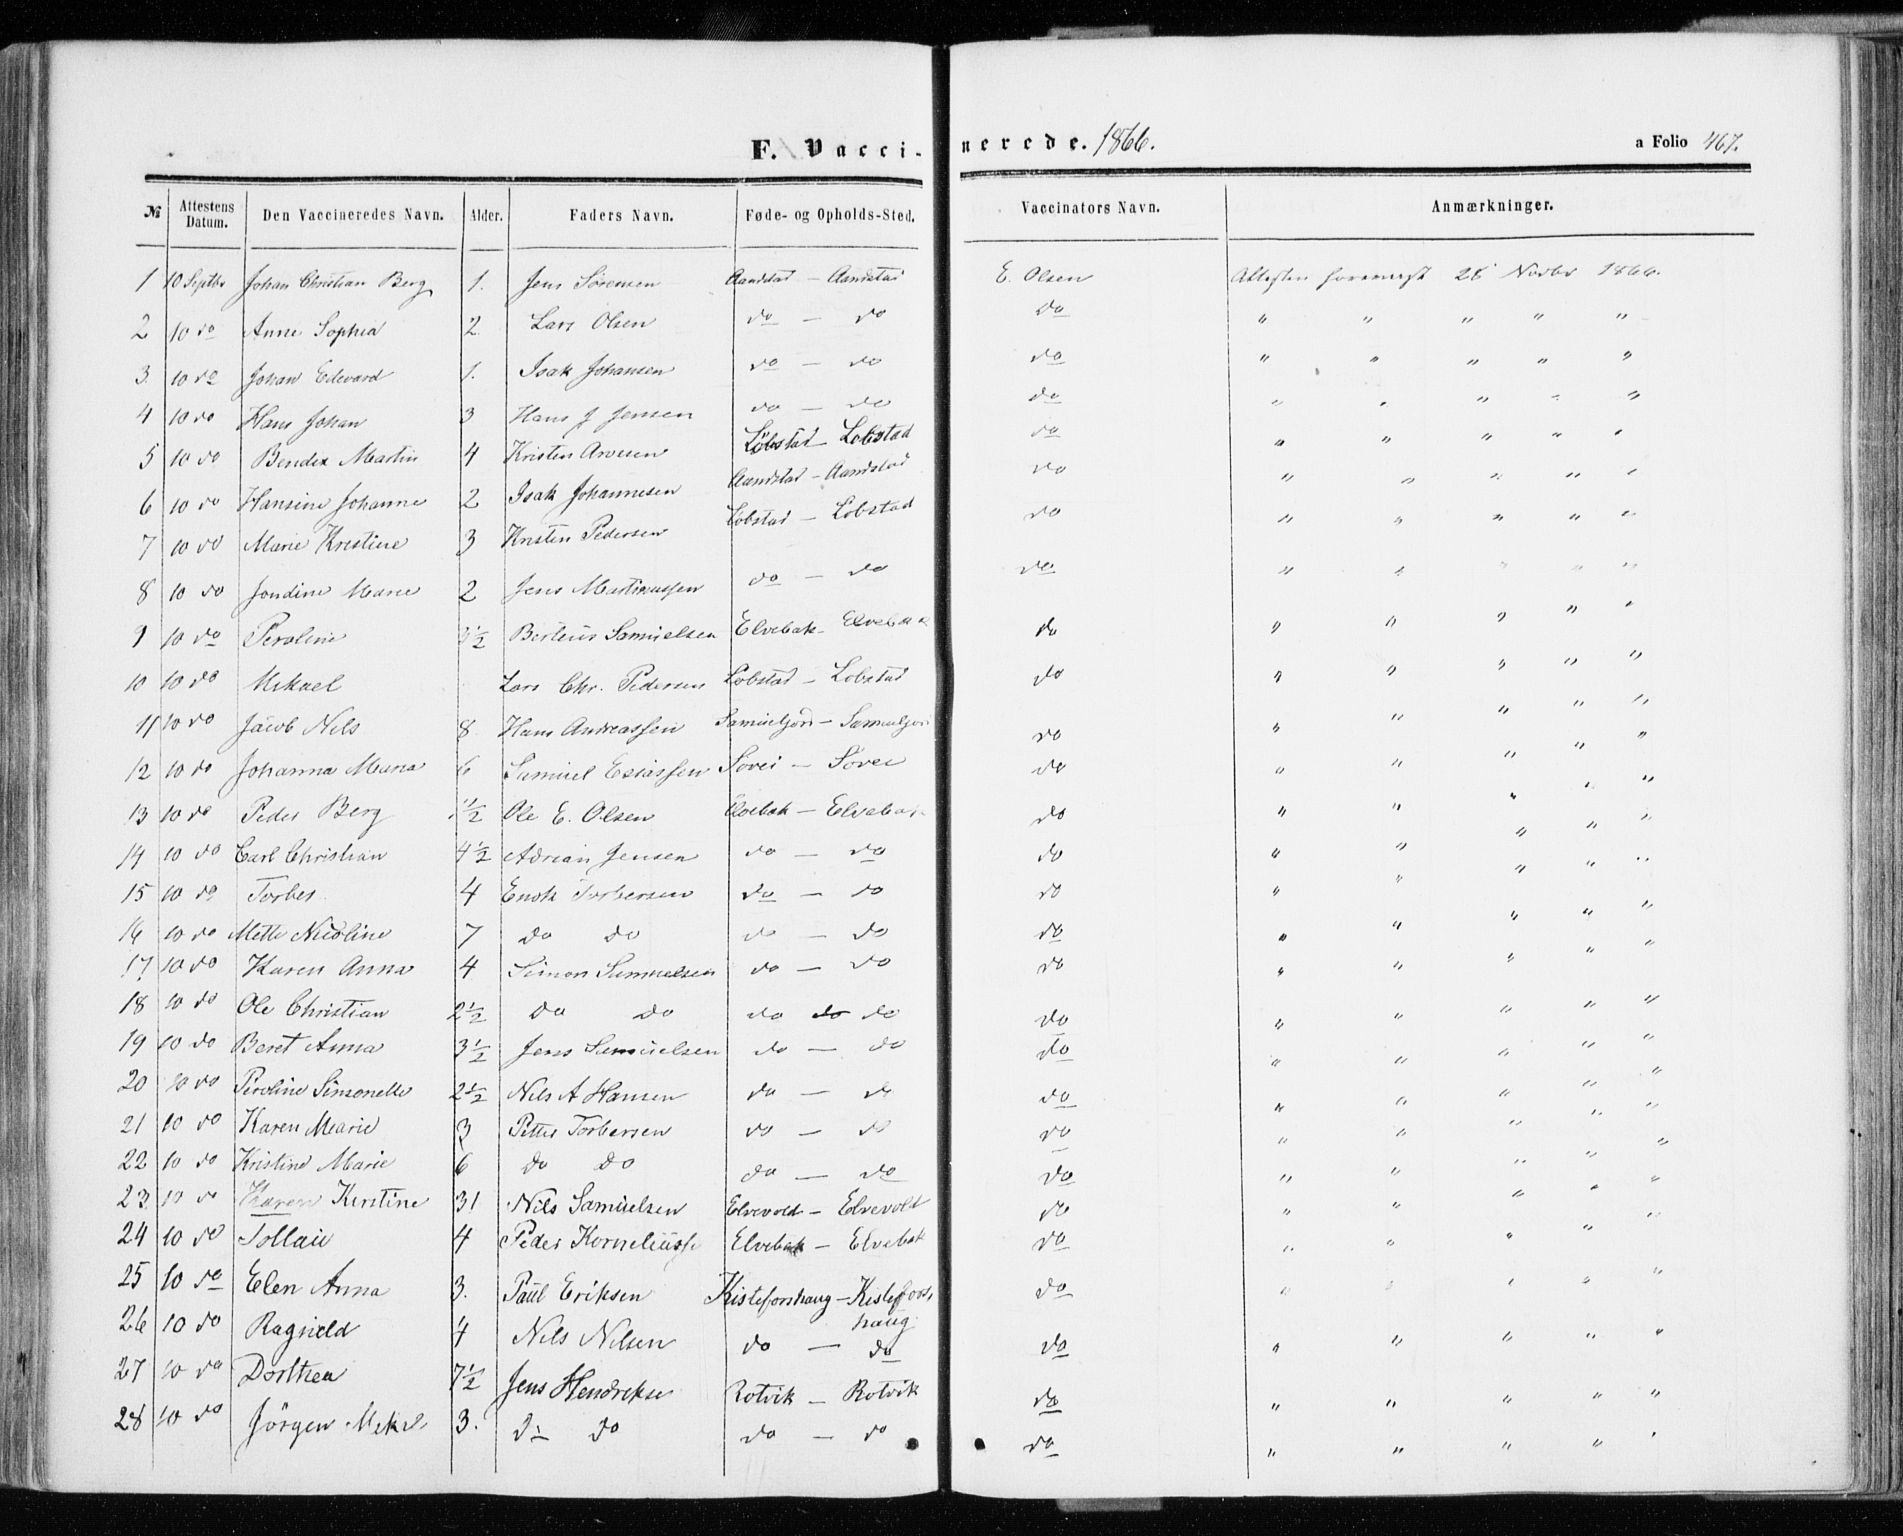 F. Vaccinerede. 1866. a Folio 467.
№ Attestens Datum. Den Vaccineredes Navn. Alder. Faders Navn. Føde- og Opholds-Sted. Vaccinators Navn. Anmærkninger.
1 10 Septbr Johan Christian Berg 1. Jens Sørensen Aandstad — Aandstad E. Olsen Attesten 28 Novbr 1866.
2 10 do Anne Sophia 2 Lars Olsen do — do do " " " " "
3. 10 do Johan Edevard 1. Isak Johansen do — do do " " " " "
4 10 do Hans Johan 3 Hans J Jensen do — do do " " " " "
5 10 do Bendix Martin 4 Kristen Arvesen Lobstad — Lobstad do " " " " "
6 10 do Hansine Johanne 2 Isak Johannesen Aandstad — Aandstad do " " " " "
7 10 do Marie Krestine 3 Kristen Pedersen Lobstad — Lobstad do " " " " "
8 10 do Jondine Marie 2 Jens do — do do " " " " "
9 10 do Peroline ½ Berteus Samuelsen Elvebak — Elvebak do " " " " "
10 10 do Mikael Lars Chr. Pedersen Lobstad — Lobstad do " " " " "
11 10 do Jacob Nils 8. Hans Andreassen Samueljord — Samueljord do " " " " "
12 10 do Johanna Maria 6 Samuel Esiassen do " " " " "
13 10 do Peder Berg 1½ Ole E. Olsen Elvebak — Elvebak do " " " " "
14 10 do Carl Christian 4½ Adrian Jensen do — do do " " " " "
15 10 do Torber 4 Enok Torbersen do — do do " " " " "
16 10 do Mette Nicoline 7 do do do — do do " " " " "
17 10 do Karen Anna 4 Simon Samuelsen do — do do " " " " "
18 10 do Ole Christian 2½ do do do do do do " " " " "
19 10 do Beret Anna 3½ Jens Samuelsen do — do do " " " " "
20 10 do Peroline Simonette 2½ Nils A Hansen do — do do " " " " "
21 10 do Karen Marie 3 Petter Torbersen do — do do " " " " "
22 10 do Kristine Marie 6 do do do — do do " " " " "
23 10 do Karen Kirstine 31 Nils Samuelsen Elvevold — Elvevold do " " " " "
24 10 do 4 Peder Korneliusse Elvebak — Elvebak do " " " " "
25 10 do Elen Anna 3. Paul Eriksen Kisteforshaug — Kistefors
haug do " " " " "
26 10 do Ragnild 4 Nils Nilsen do — do do " " " " "
27 10 do Dorthea 7½ Jens Hendrikse Rotvik — Rotvik do " " " " "
28 10 do Jörgen Mikal 3. do do do — do do " " " " "